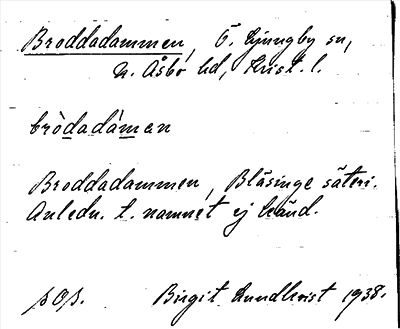 Broddadammen, Ö. Ljungby sn,
N. Åsbo hd, Krist. l.
bròdadámen
Broddadammen, Bläsinge säteri.
Anledn. t. namnet ej känd.
pop. Birgit Lundkvist 1938.